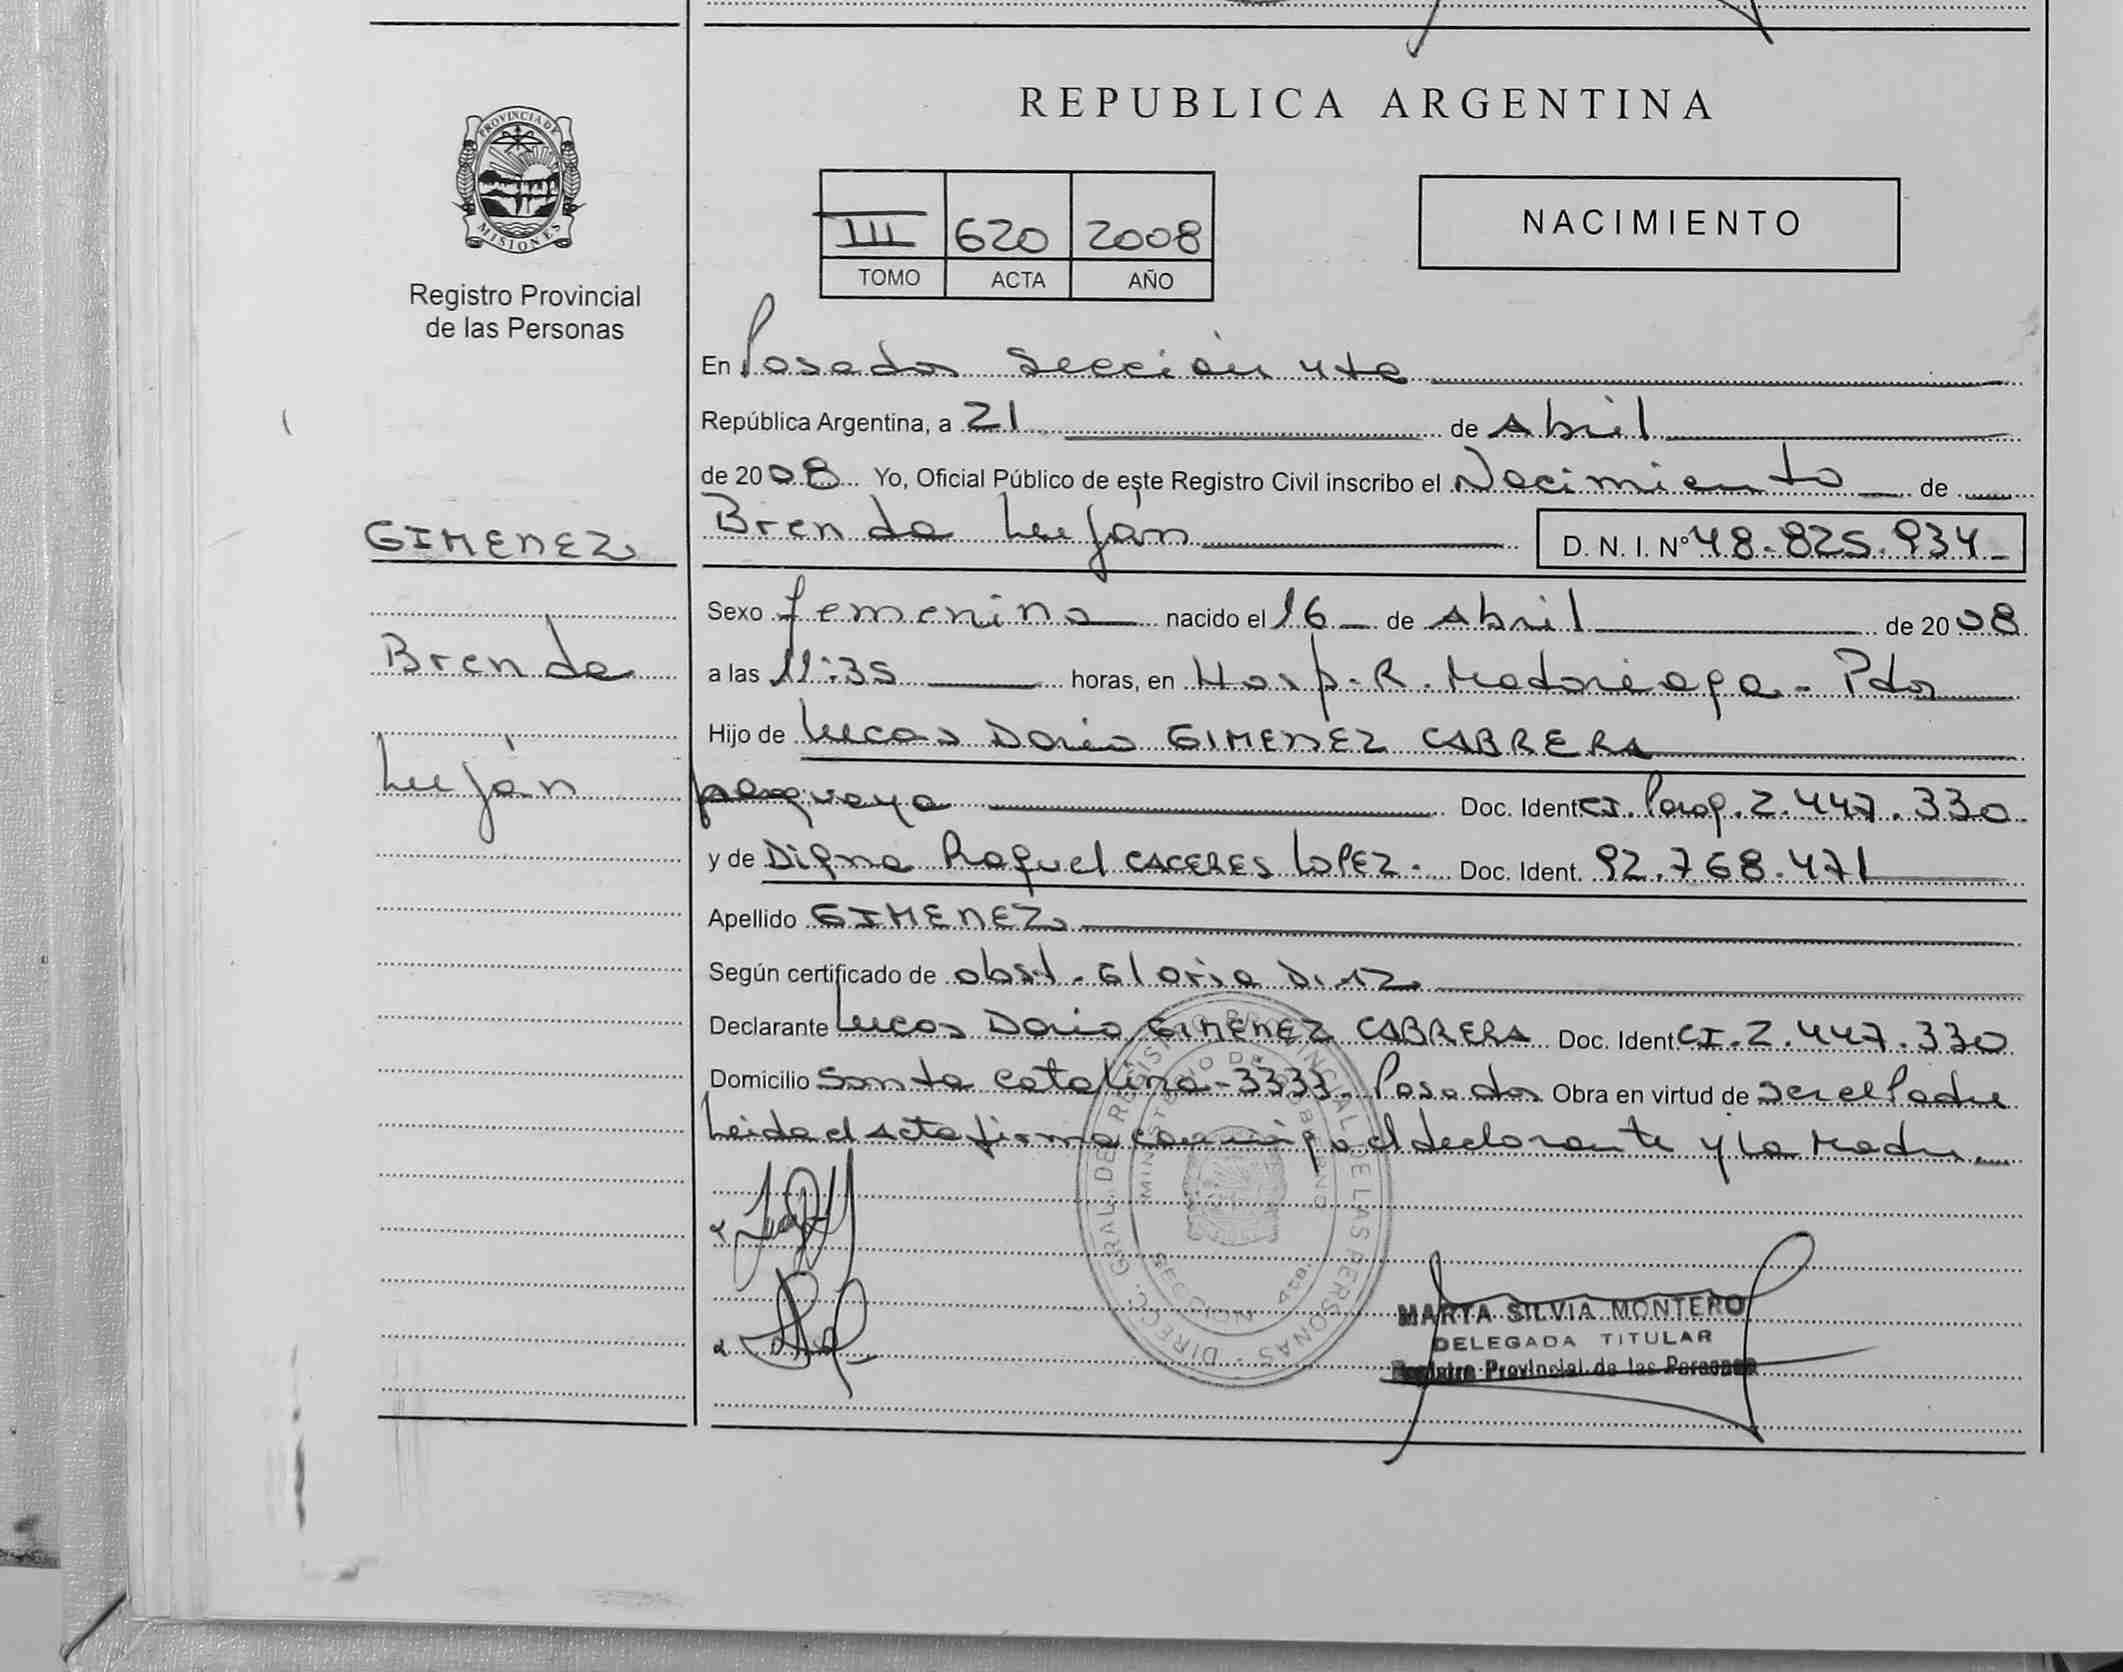 PROVINCIA DE
MISIONES
Registro Provincial
de las Personas
GIMENEZ
Brenda
Luján
REPUBLICA ARGENTINA
III 620 2008
TOMO ACTA AÑO
NACIMIENTO
En Posadas Sección 4ta
República Argentina, a 21 de Abril
de 2008 Yo, Oficial Público de este Registro Civil inscribo el Nacimiento de
Brenda Luján D. N. I. Nº 48.825.934
Sexo femenino nacido el 16 de Abril de 2008
a las 11:35 horas, en Hosp. R. Madariaga - Pdas
Hijo de Lucas Dario GIMENEZ CABRERA
paraguaya Doc. Ident. CI. Parag. 2.447.330
y de Digna Raquel CACERES LOPEZ. Doc. Ident. 92.768.471
Apellido GIMENEZ
Según certificado de obst. Gloria Diaz
Declarante Lucas Dario GIMENEZ CABRERA Doc. Ident CI. 2.447.330
Domicilio Santa Catalina - 3333 Posadas Obra en virtud de ser el Padre
Leida el acta firma conmigo el declarante y la Madre
DIRECC. GRAL. DE REGISTRO PROVINCIAL DE LAS PERSONAS
MINISTERIO DE GOBIERNO
SECCION 4ta
MARTA SILVIA MONTERO
DELEGADA TITULAR
Registro Provincial de las Personas